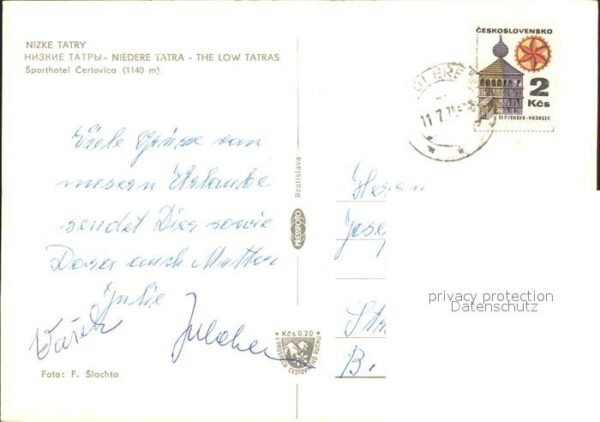 NIZKE TATRY
НИЗКИЕ ТАТРЫ - NIEDERE TATRA - THE LOW TATRAS
Športhotel Čertovica (1140 m)
Viele Grüsse von
unseren Urlaube
sendet Dir sowie
Deser auch Mutter
Julie
Foto: F. Šlachta
Bratislava
PRESSFOTO
Kčs 0.20
ČESKOSLOVENSKO
2
Kčs
SLOVENSKO-HRONSEK
11.7.7
Herrn
Josef
B.
privacy protection
Datenschutz